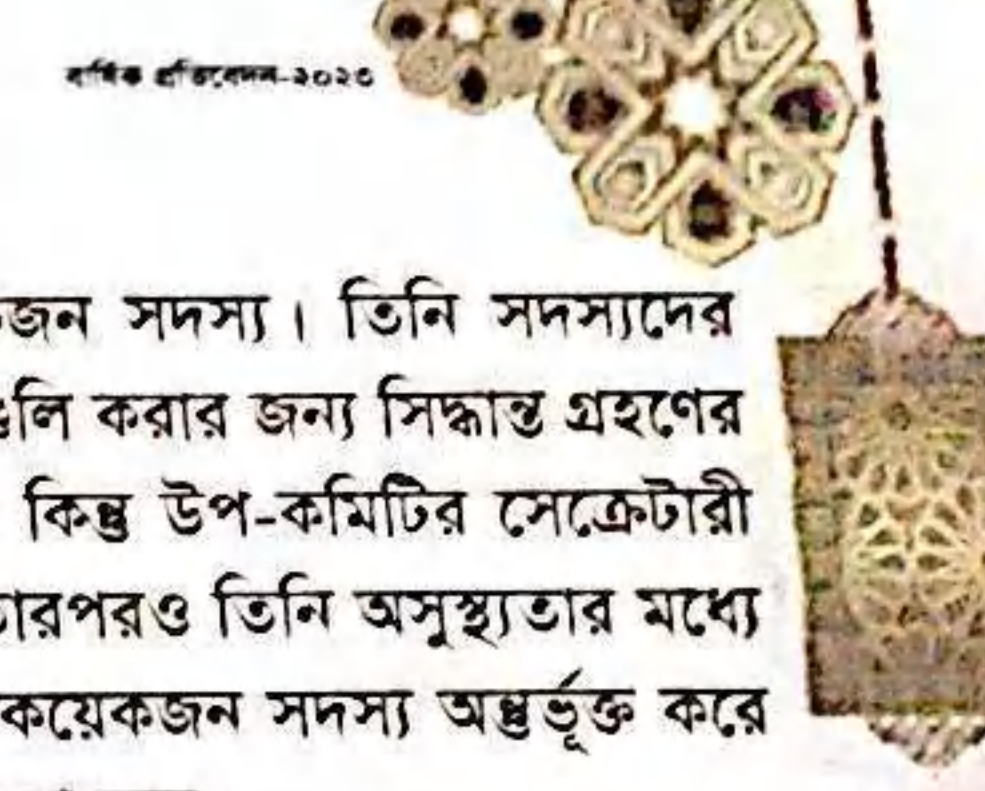 বার্ষিক প্রতিবেদন-২০২৩
সদস্য। তিনি সদস্যদের
করার জন্য সিদ্ধান্ত গ্রহণের
কিন্তু উপ-কমিটির সেক্রেটারী
তিনি অসুস্থ্যতার মধ্যে
কয়েকজন সদস্য অন্তুর্ভূক্ত করে